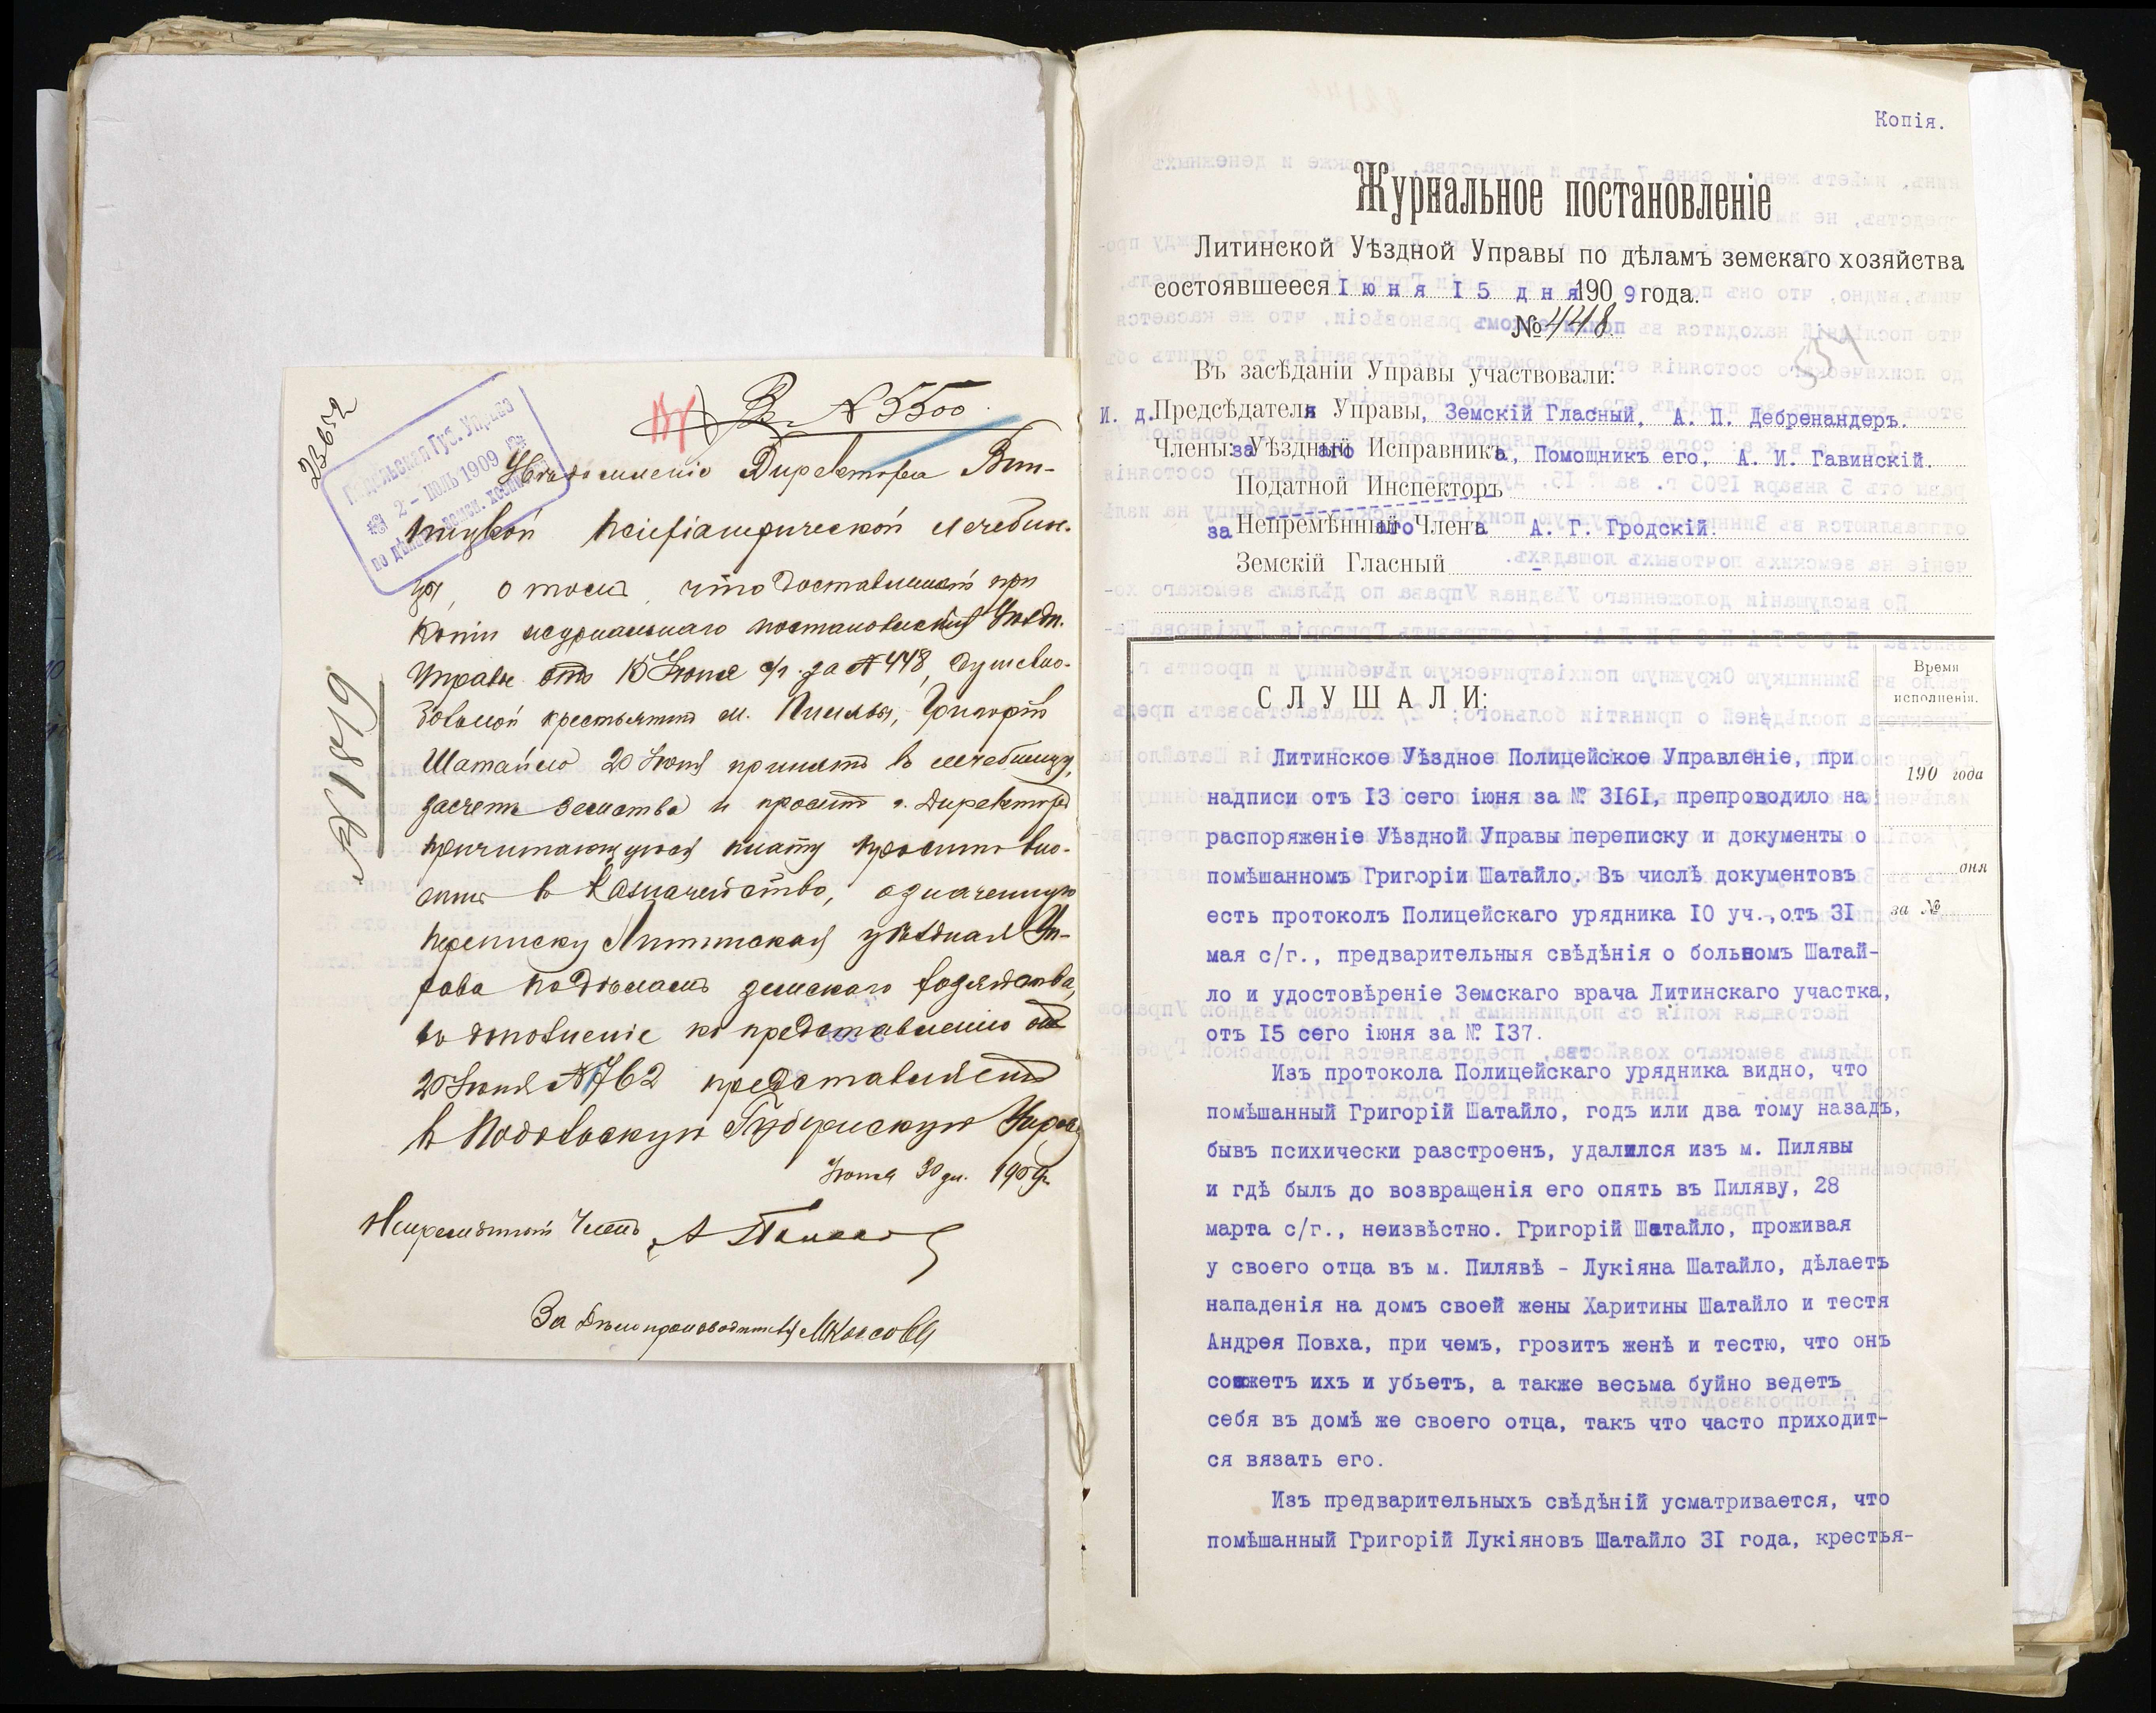 23652
Подольская Губ. Управа
2 - ІЮЛЬ 1909
по дѣламъ земск. хозяйства
Къ № 5500.
Увѣдомленіе Директора Вин-
ницкой психіатрической лечебни-
цы, о томъ, что доставленный при
копіи журнальнаго постановленія Уѣздн.
Управы отъ 15 Іюня с/г. за № 448, душевно-
больной крестьянинъ м. Пилявы, Григорій
Шатайло 20 Іюня принятъ въ лечебницу,
засчетъ земства и проситъ г. Директоръ
причитающуюся плату просить вно-
сить въ Казначейство, означенную
переписку Литинская уѣздная Уп-
рава по дѣламъ земскаго хозяйства,
въ дополненіе къ представленію отъ
20 Іюня № 1762 представляетъ
въ Подольскую Губернскую Управу
Іюня 30 дн. 1909 г.
№ 1819
Непремѣнный Членъ
За Дѣлопроизводителя
Копія.
Журнальное постановленіе
Литинской Уѣздной Управы по дѣламъ земскаго хозяйства
состоявшееся Іюня I5 дня 190 9 года.
№ 448.
554
Въ засѣданіи Управы участвовали:
И. д. Предсѣдателя Управы, Земскій Гласный, А. П. Дебренандеръ.
Члены: за Уѣзднаго Исправника, Помощникъ его, А. И. Гавинскій.
Податной Инспекторъ
за Непремѣннаго Члена А. Г. Гродскій.
Земскій Гласный -
СЛУШАЛИ:
Время
исполненія.
190 года
дня
за №
Литинское Уѣздное Полицейское Управленіе, при
надписи отъ I3 сего іюня за № 3I6I, препроводило на
распоряженіе Уѣздной Управы переписку и документы о
помѣшанномъ Григоріи Шатайло. Въ числѣ документовъ
есть протоколъ Полицейскаго урядника I0 уч., отъ 3I
мая с/г., предварительныя свѣдѣнія о больномъ Шатай-
ло и удостовѣреніе Земскаго врача Литинскаго участка,
отъ I5 сего іюня за № I37.
Изъ протокола Полицейскаго урядника видно, что
помѣшанный Григорій Шатайло, годъ или два тому назадъ,
бывъ психически разстроенъ, удалился изъ м. Пилявы
и гдѣ былъ до возвращенія его опять въ Пиляву, 28
марта с/г., неизвѣстно. Григорій Шатайло, проживая
у своего отца въ м. Пилявѣ - Лукіяна Шатайло, дѣлаетъ
нападенія на домъ своей жены Харитины Шатайло и тестя
Андрея Повха, при чемъ, грозитъ женѣ и тестю, что онъ
сожжетъ ихъ и убьетъ, а также весьма буйно ведетъ
себя въ домѣ же своего отца, такъ что часто приходит-
ся вязать его.
Изъ предварительныхъ свѣдѣній усматривается, что
помѣшанный Григорій Лукіяновъ Шатайло 3I года, крестья-